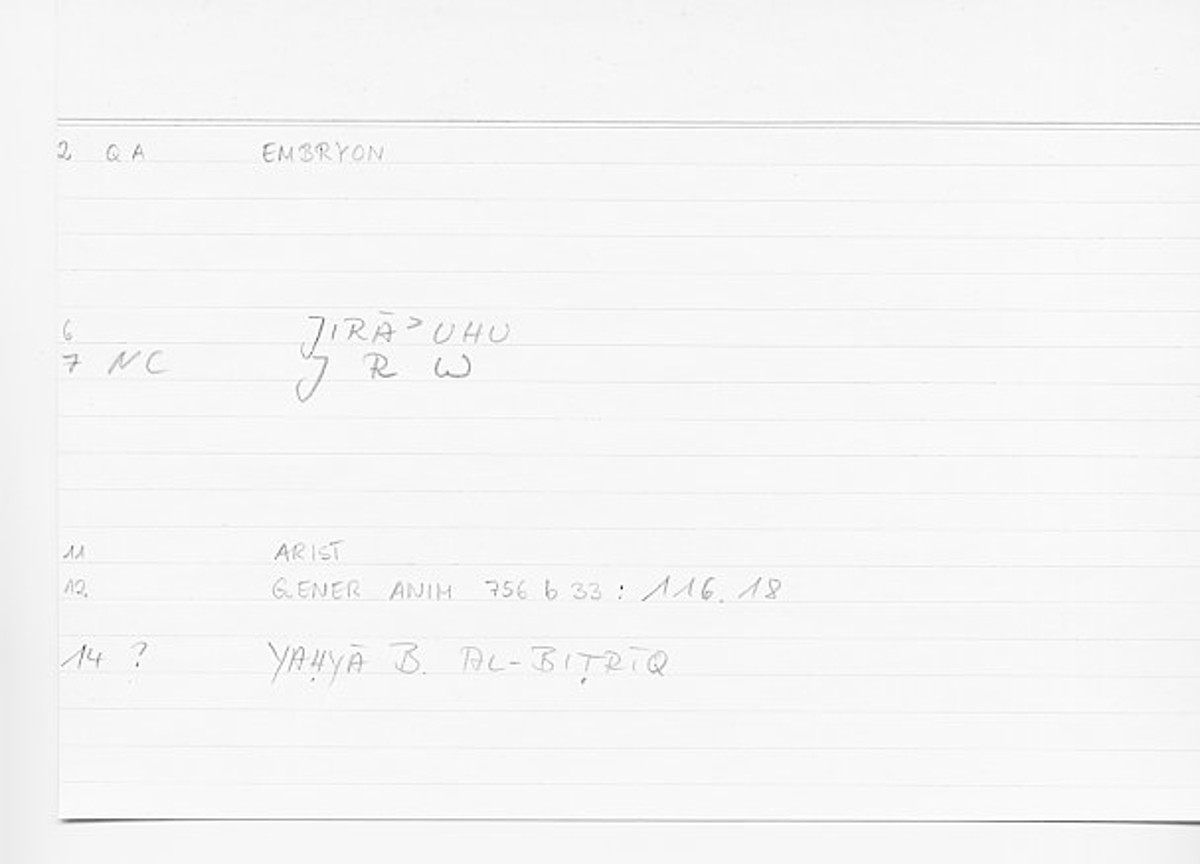 2 QA EMBRYON
6 JIRĀʾUHU
7 NC J R W
11 ARIST
12 GENER ANIM 756 b 33 : 116.18
14 ? YAḤYĀ B. AL-BIṬRĪQ